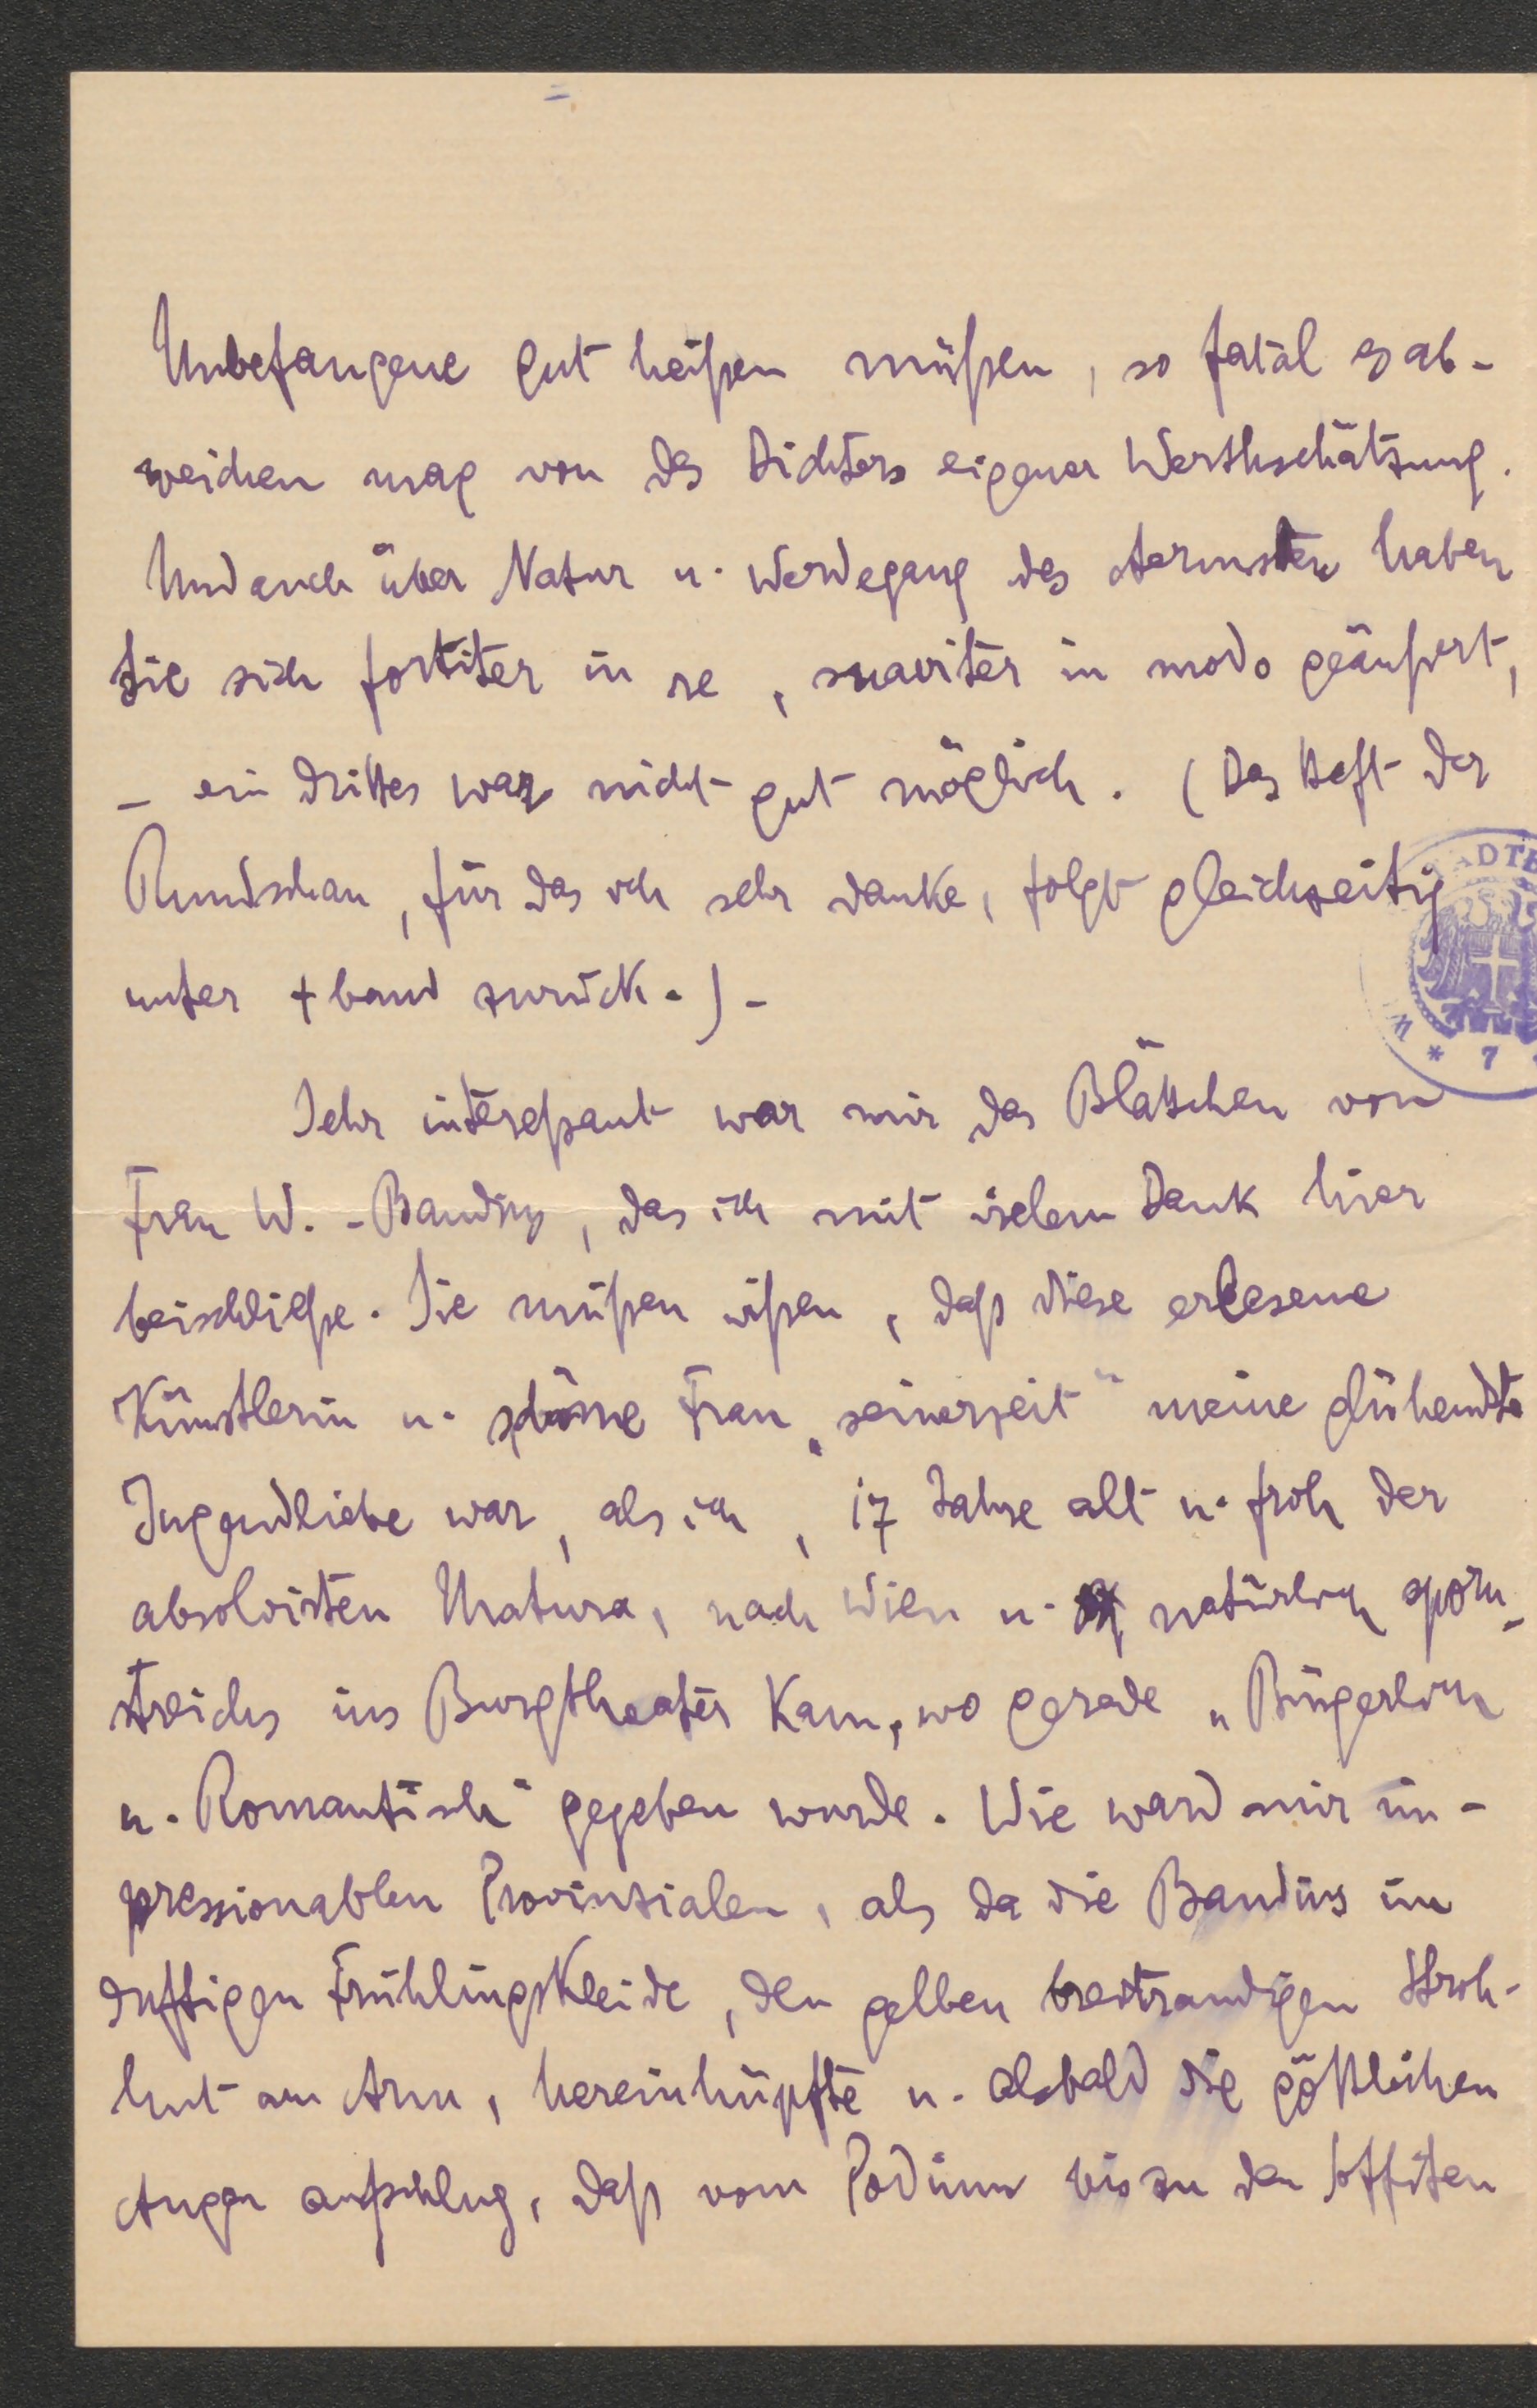 Unbefangene gut heißen müßen, so fatal es ab-
weichen mag von des Dichters eigener Werthschätzung.
Und auch über Natur u. Werdegang des Aermsten haben
Sie sich fortiter in re, suaviter in modo geäußert,
– ein drittes war nicht gut möglich. (Das Heft der
Rundschau, für das ich sehr danke, folgt gleichzeitig
unter +band zurück.) –
Sehr interessant war mir das Blättchen von
Frau W.-Baudius, das ich mit vielem Dank hier
beischließe. Sie müßen wißen, daß diese erlesene
Künstlerin u. schöne Frau „seinerzeit" meine glühendste
Jugendliebe war, als ich, 17 Jahre alt u. froh der
absolvirten Matura, nach Wien u. natürlich sporn-
streichs ins Burgtheater kam, wo gerade „Bürgerlich
u. Romantisch" gegeben wurde. Wie ward mir im-
pressionablen Provinzialen, als da die Baudius im
duftigen Frühlingskleide, den gelben breitrandigen Stroh-
hut am Arm, hereinhüpfte u. alsbald die göttlichen
Augen aufschlug, daß vom Podium bis zu den Soffiten
ADTB
W
* 7